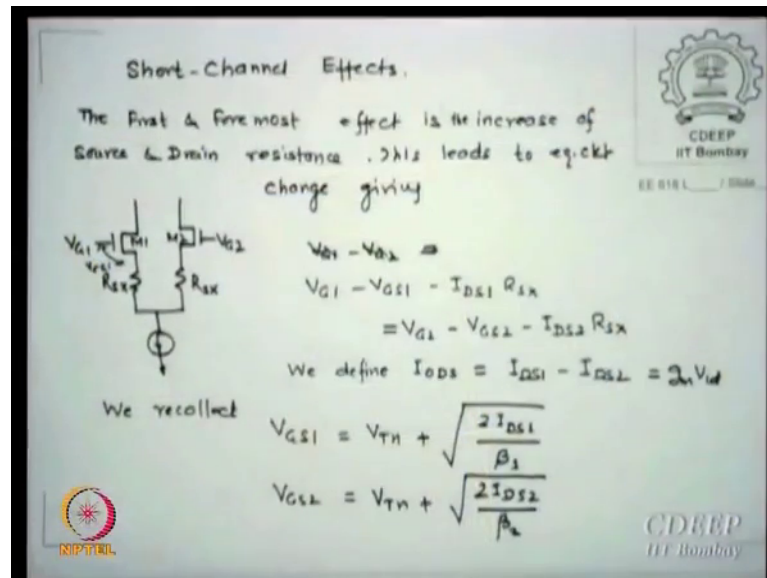 Short-Channel Effects.
The First & Foremost effect is the increase of
Source & Drain resistance. This leads to eq.ckt
change giving
VG1 M1 M2 VG2
VGS1
RSX RSX
VG1 - VG2 =
VG1 - VGS1 - IDS1 RSX
= VG2 - VGS2 - IDS2 RSX
We define IODS = IDS1 - IDS2 = gm Vid
We recollect
VGS1 = VTN + √(2 IDS1 / β1)
VGS2 = VTN + √(2 IDS2 / β2)
CDEEP
IIT Bombay
EE 618 L / Slide
NPTEL
CDEEP
IIT Bombay